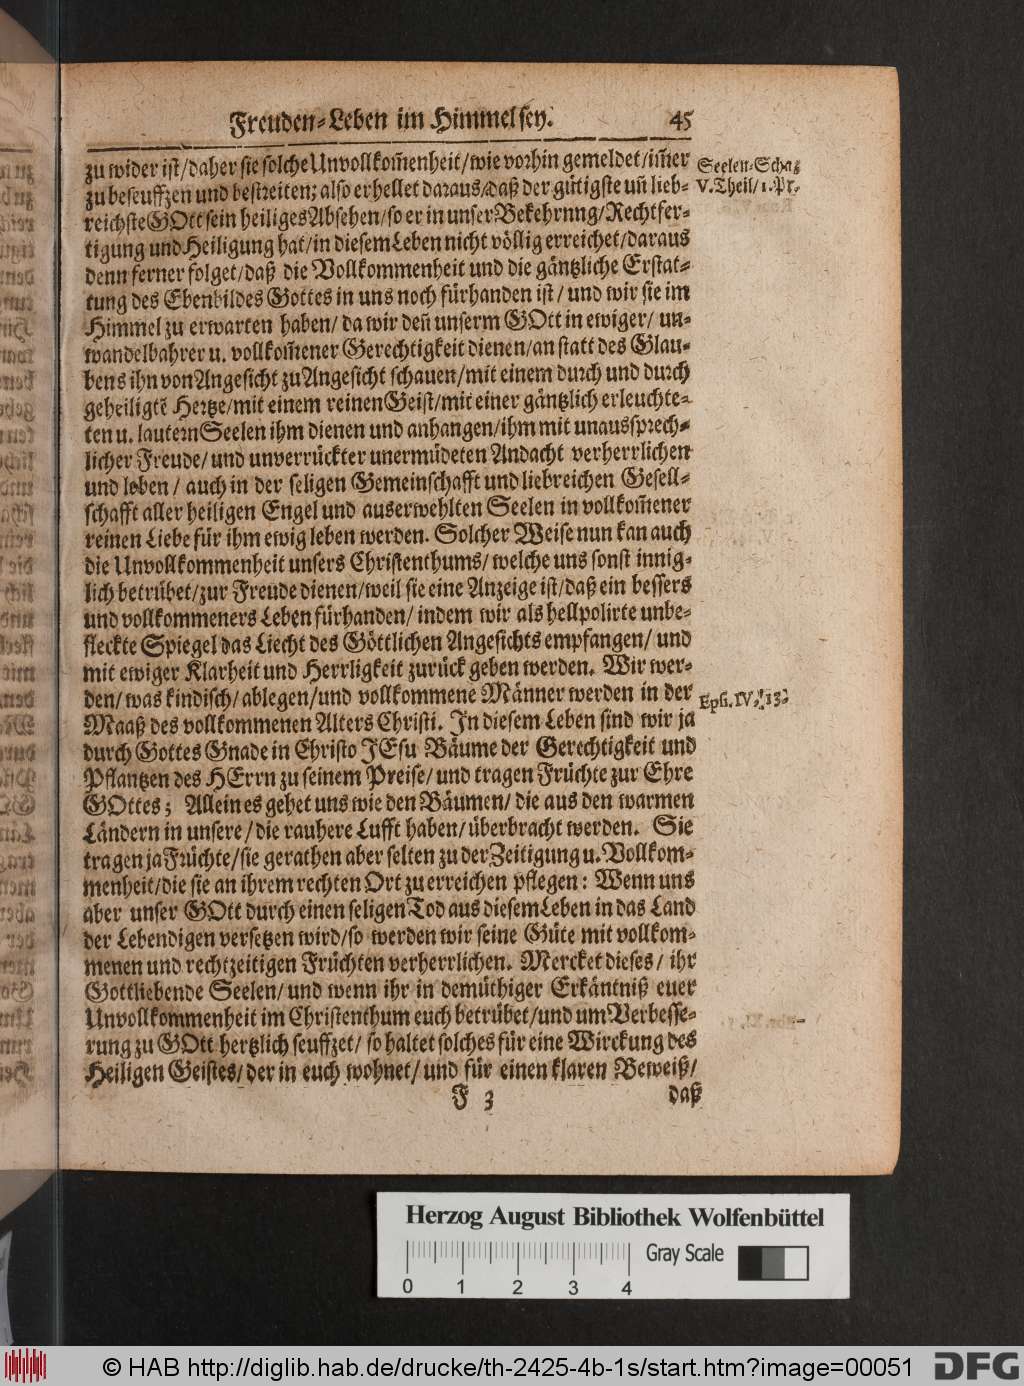 Freuden-Leben im Himmel sey. 45
zu wider ist/daher sie solche Unvollkom̃enheit/wie vorhin gemeldet/im̃er
zu beseuffzen und bestreiten; also erhellet daraus/daß der gütigste uñ lieb-
reichste GOtt sein heiliges Absehen/so er in unser Bekehrnng/Rechtfer-
tigung und Heiligung hat/in diesem Leben nicht völlig erreichet/daraus
denn ferner folget/daß die Vollkommenheit und die gäntzliche Erstat-
tung des Ebenbildes Gottes in uns noch fürhanden ist/ und wir sie im
Himmel zu erwarten haben/ da wir deñ unserm GOtt in ewiger/ un-
wandelbahrer u. vollkom̃ener Gerechtigkeit dienen/an statt des Glau-
bens ihn von Angesicht zu Angesicht schauen/mit einem durch und durch
geheiligtẽ Hertze/mit einem reinen Geist/mit einer gäntzlich erleuchte-
ten u. lautern Seelen ihm dienen und anhangen/ihm mit unaussprech-
licher Freude/ und unverrückter unermüdeten Andacht verherrlichen
und loben / auch in der seligen Gemeinschafft und liebreichen Gesell-
schafft aller heiligen Engel und auserwehlten Seelen in vollkom̃ener
reinen Liebe für ihm ewig leben werden. Solcher Weise nun kan auch
die Unvollkommenheit unsers Christenthums/ welche uns sonst innig-
lich betrübet/zur Freude dienen/weil sie eine Anzeige ist/daß ein bessers
und vollkommeners Leben fürhanden/ indem wir als hellpolirte unbe-
fleckte Spiegel das Liecht des Göttlichen Angesichts empfangen/ und
mit ewiger Klarheit und Herrligkeit zurück geben werden. Wir wer-
den/ was kindisch/ ablegen/und vollkommene Männer werden in der
Maaß des vollkommenen Alters Christi. In diesem Leben sind wir ja
durch Gottes Gnade in Christo JEsu Bäume der Gerechtigkeit und
Pflantzen des HErrn zu seinem Preise/ und tragen Früchte zur Ehre
GOttes; Allein es gehet uns wie den Bäumen/ die aus den warmen
Ländern in unsere/ die rauhere Lufft haben/ überbracht werden. Sie
tragen ja Früchte/sie gerathen aber selten zu der Zeitigung u. Vollkom-
menheit/die sie an ihrem rechten Ort zu erreichen pflegen: Wenn uns
aber unser GOtt durch einen seligen Tod aus diesem Leben in das Land
der Lebendigen versetzen wird/so werden wir seine Güte mit vollkom-
menen und rechtzeitigen Früchten verherrlichen. Mercket dieses/ ihr
Gottliebende Seelen/ und wenn ihr in demüthiger Erkäntniß euer
Unvollkommenheit im Christenthum euch betrübet/und um Verbesse-
rung zu GOtt hertzlich seuffzet/ so haltet solches für eine Wirckung des
Heiligen Geistes/ der in euch wohnet/ und für einen klaren Beweiß/
F 3 daß
Seelen-Schatz
V. Theil/1. Pr.
Eph. IV. 13.
Herzog August Bibliothek Wolfenbüttel
Gray Scale
0 1 2 3 4
© HAB http://diglib.hab.de/drucke/th-2425-4b-1s/start.htm?image=00051
DFG